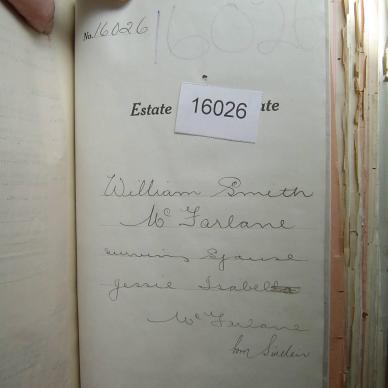 No. 16026
16026
Estate
16026
ate
William Smith
Mc Farlane
surviving Spouse
Jessie Isabella
Mc Farlane
born Sinclair